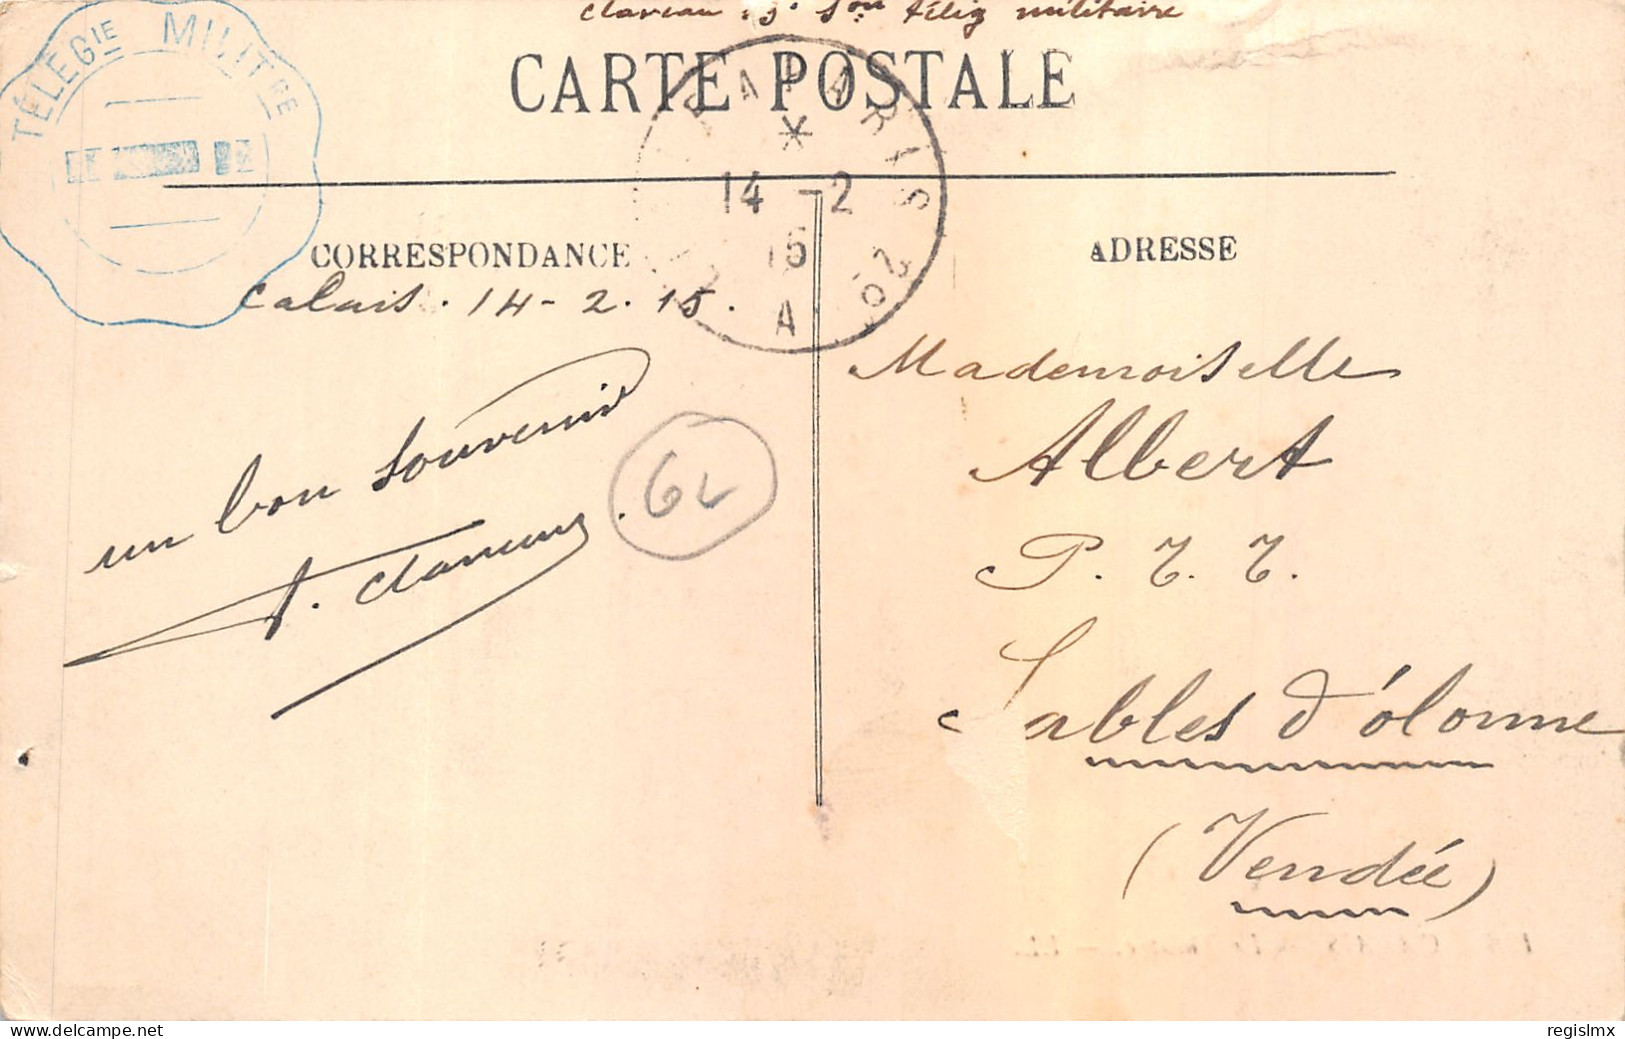 claveau 3e Son télég militaire
TÉLÉGIE MILITRE
CARTE POSTALE
14 -2
15
A
CORRESPONDANCE
ADRESSE
Calais. 14-2.15.
un bon souvenir
62
Mademoiselle
Albert
P.T.T.
Sables d'ólonne
(Vendée)
www.delcampe.net
regislmx